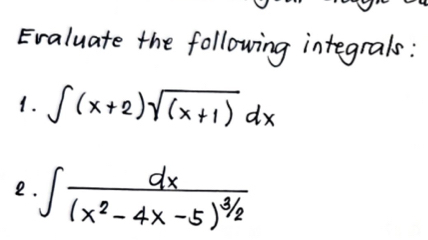 Evaluate the following integrals:
1. ∫(x+2)√(x+1) dx
2. ∫ dx / (x² - 4x - 5)^3/2